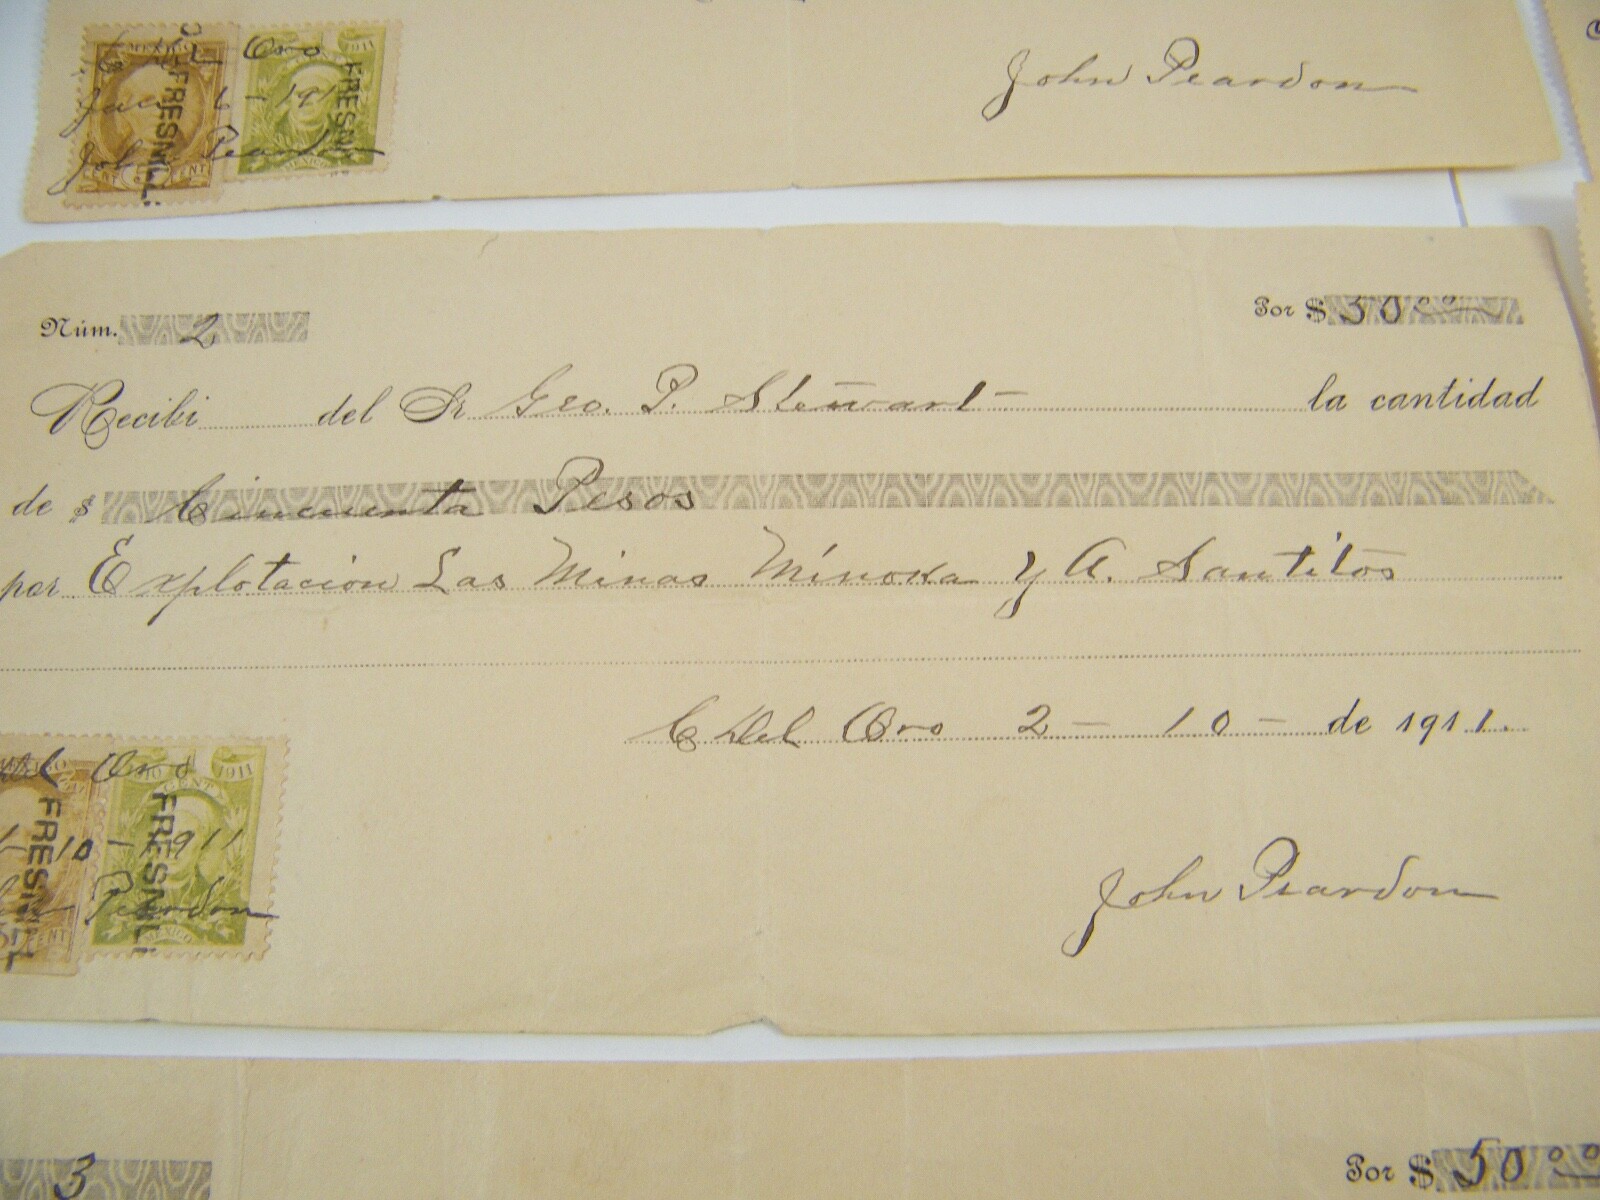 MEXICO
C Del Oro
1911
Jan 6 - 191
John Peardon
FRESNILL
FRESNI
CENT
CENT
MEXICO
John Peardon
Núm. 2
Por $ 50 00
Recibi del Sr Geo. P. Stewart la cantidad
de $ Cincuenta Pesos
por Explotacion Las Minas Minoxa y A. Santitos
C Del Oro 2 - 10 - de 1911.
MEXICO
Del Oro
1911
CENT
10 - 1911
Peardon
FRESNILL
FRESNILL
CENT
MEXICO
John Peardon
3
Por $ 50 00